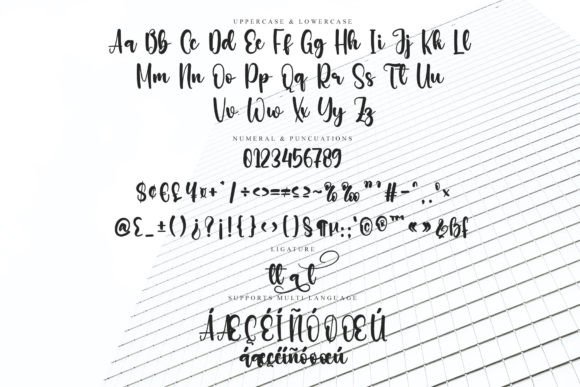 UPPERCASE & LOWERCASE
Aa Bb Cc Dd Ee Ff Gg Hh Ii Jj Kk Ll
Mm Nn Oo Pp Qq Rr Ss Tt Uu
Vv Ww Xx Yy Zz
NUMERAL & PUNCUATIONS
0123456789
$¢€£¥¤+*/÷<>=≠≤≥~%‰"'#-^.,°×
@&_±()¿?¡!{}‹›()§¶µ:;'©®™«»
LIGATURE
tt q t
SUPPORTS MULTI LANGUAGE
ÁÆÇÉÍÑÓØŒÚ
áæçéíñóøœú